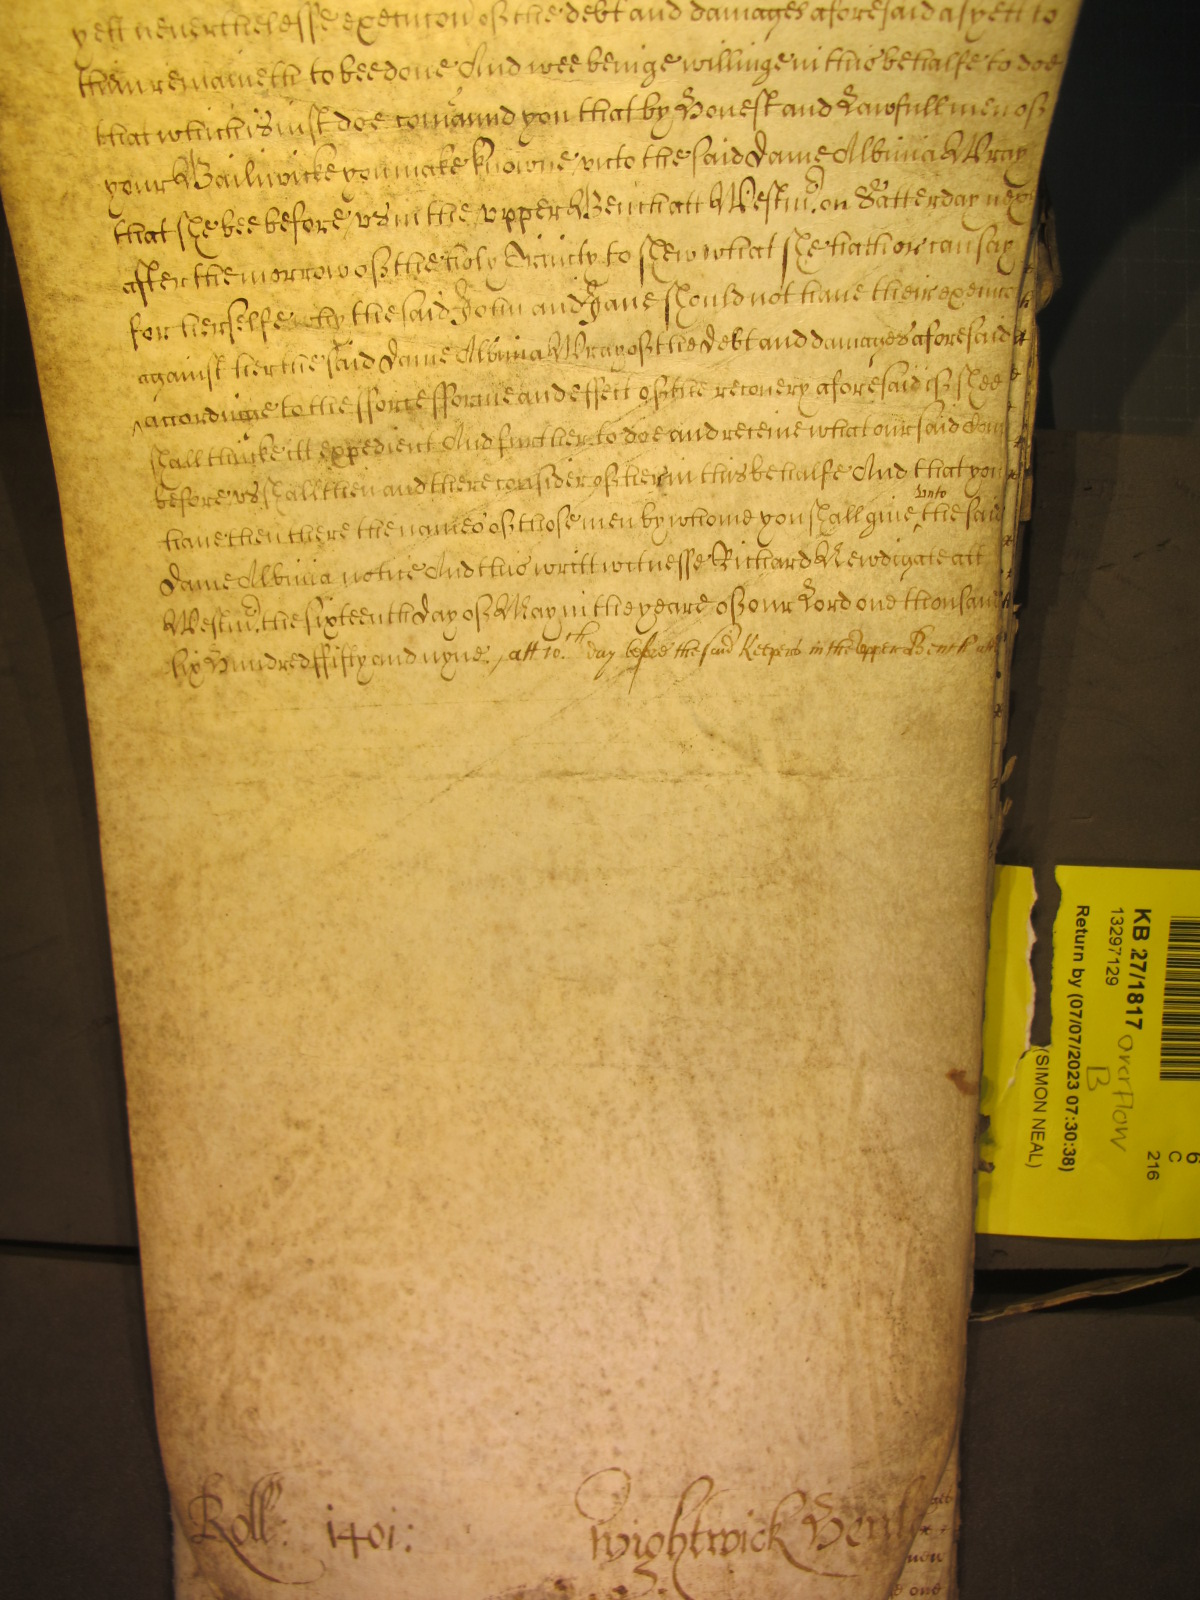 yett neverthelesse execucon of the debt and damages aforesaid as yett to
them remaineth to bee done And wee beinge willinge in this behalfe to doe
that which is iust doe comaund you that by Honest and Lawfull men of
your Bailiwicke you make knowne vnto the said Dame Albinia Wray
that she bee before vs in the vpper Bench att Westm. on Satterday next
after the morrow of the holy Trinity to shew what she hath or can say
for herselfe why the said John and Jane should not have their execuco
against her the said Dame Albinia Wray of the Debt and damages aforesaid
accordinge to the fforce fforme and effect of the recovery aforesaid if shee
shall thinke itt expedient And further to doe and receive what our said Court
before vs shall then and there consider of her in this behalfe And that you
have then there the names of those men by whome you shall give vnto the said
Dame Albinia notice And this writt witnesse Richard Newdigate att
Westm. the sixteenth Day of May in the yeare of our Lord one thousand
six Hundred ffifty and nyne. att wch. day before the said Keepers in the vpper Bench att
Roll: 1401:
Wightwick
KB 27/1817
13297129
Return by (07/07/2023 07:30:38)
(SIMON NEAL)
overflow
B
216
C
6
non
one